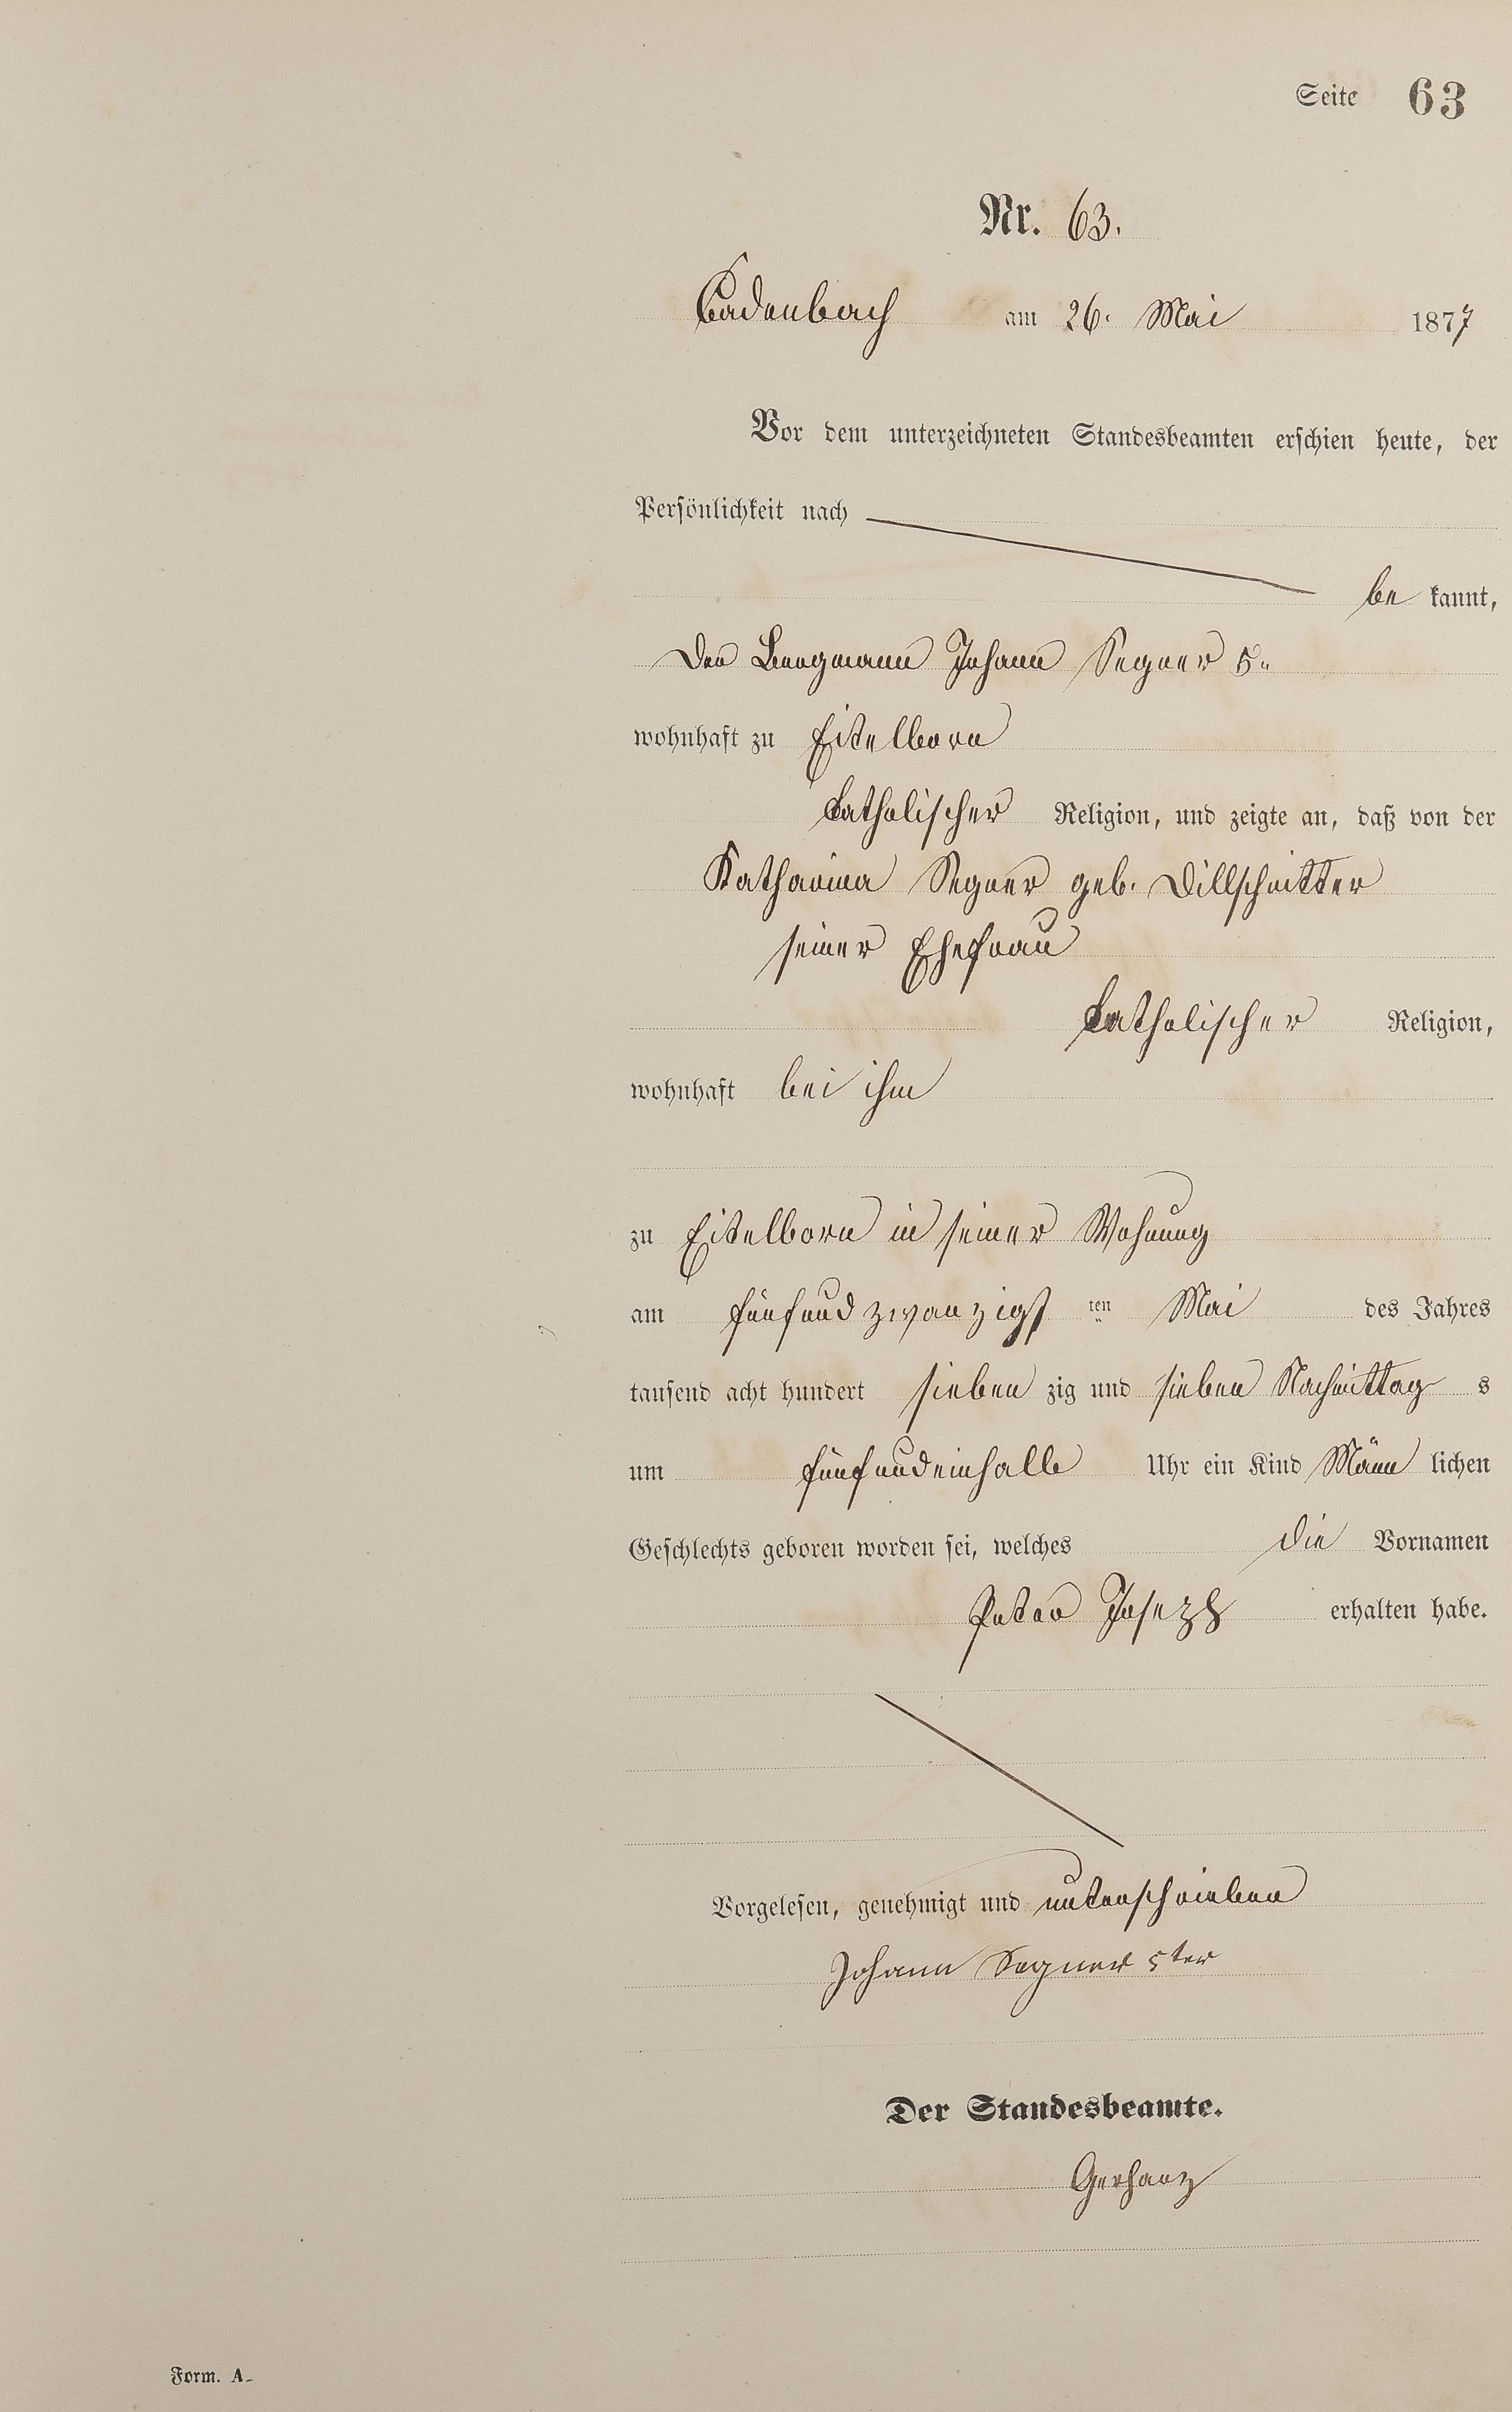 Seite 63
Nr. 63.
Cadenbach am 26. Mai 1877
Vor dem unterzeichneten Standesbeamten erschien heute, der
Persönlichkeit nach
be kannt,
der Bergmann Johann Segner 5.
wohnhaft zu Eitelborn
katholischer Religion, und zeigte an, daß von der
Katharina Segner geb. Dillschnitter
seiner Ehefrau
katholischer Religion,
wohnhaft bei ihm
zu Eitelborn in seiner Wohnung
am fünfundzwanzigs ten Mai des Jahres
tausend acht hundert sieben zig und sieben Nachmittag s
um fünfundeinhalb Uhr ein Kind Männ lichen
Geschlechts geboren worden sei, welches die Vornamen
Peter Joseph erhalten habe.
Vorgelesen, genehmigt und unterschrieben
Johann Segner 5ter
Der Standesbeamte.
Gerharz
Form. A.